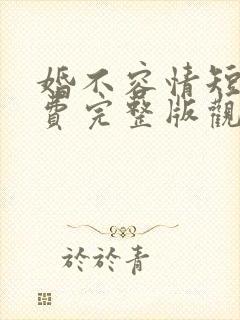 婚不容情短
費完整版觀
於於青